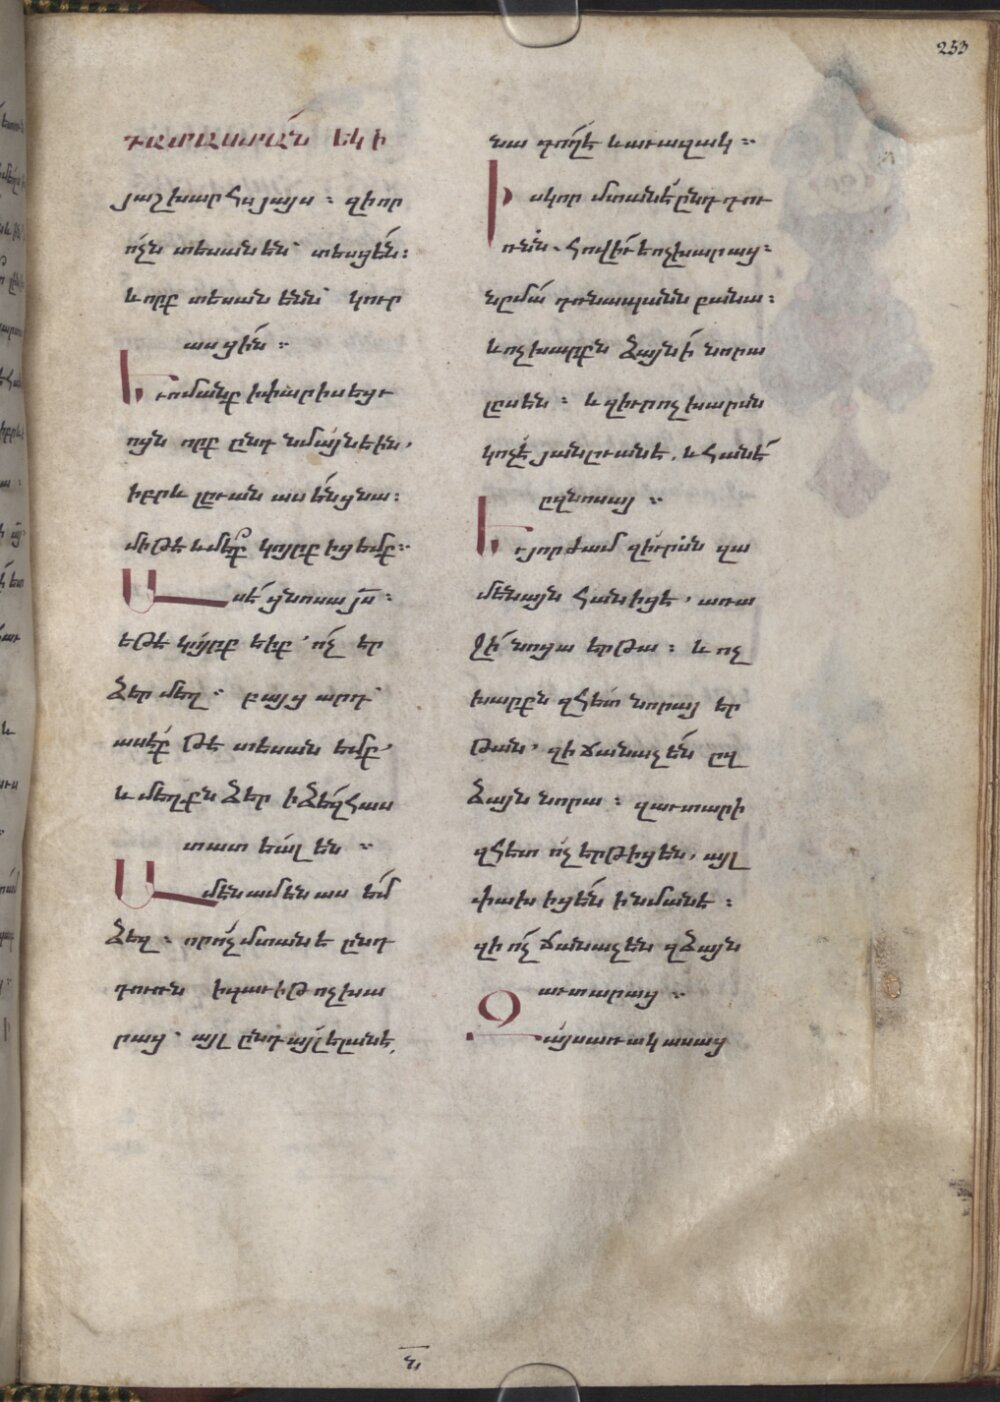 253
դատաստան եկի
յաշխարհս յայս ։ զի որ
ոչն տեսանեն՝ տեսցեն։
և որք տեսանենն՝ կուր
ասցին ։
Եւ ոմանք ի փարիսեցւ
ոցն որք ընդ նմայն էին,
իբրև լըւան ասեն ցնա։
միթե և մեք կոյրք իցեմք։
Ասէ ցնոսա յս ։
եթե կոյրք էիք՝ ոչ եր
ձեր մեղ ։ բայց արդ՝
ասէք թե տեսանեմք,
և մեղքն ձեր ի ձեզ հաս
տատ եալ են ։
Ամեն ամեն ասեմ
ձեզ ։ որ ոչ մտանե ընդ
դուռն ի գաւիթ ոչխա
րաց՝ այլ ընդ այլ ելանե,
նա գող է և աւազակ ։
Իսկ որ մտանե ընդ դու
ռնն. հովիւ է ոչխարաց։
նըմա դռնապանն բանա։
և ոչխարքն ձայնի նորա
լըսեն ։ և զիւր ոչխարսն
կոչէ յանըւանե. և հանե
ըզնոսայ ։
Եւ յորժամ զիւրսն զա
մենայն հանիցե, առա
ջի նոցա երթա ։ և ոչ
խարքն զհետ նորայ եր
թան, զի ճանաչեն ըզ
ձայն նորա ։ զաւտարի
զհետ ոչ երթիցեն, այլ
փախիցեն ի նմանե ։
զի ոչ ճանաչեն զձայն
աւտարաց ։
Զայս առակ ասաց